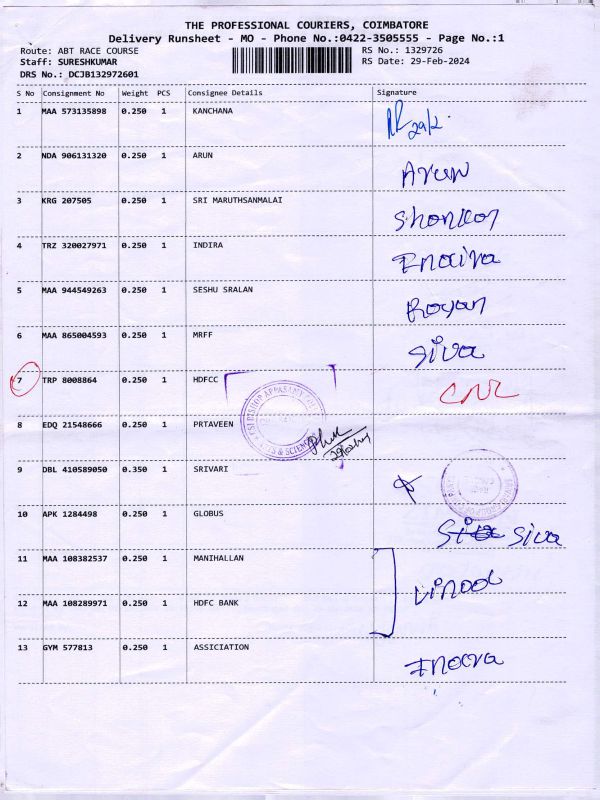 THE PROFESSIONAL COURIERS, COIMBATORE
Delivery Runsheet - MO - Phone No.:0422-3505555 - Page No.:1
Route: ABT RACE COURSE
RS No.: 1329726
Staff: SURESHKUMAR
RS Date: 29-Feb-2024
DRS No.: DCJB132972601
S No Consignment No Weight PCS Consignee Details Signature
1 MAA 573135898 0.250 1 KANCHANA 29/2
2 NDA 906131320 0.250 1 ARUN Arun
3 KRG 207505 0.250 1 SRI MARUTHSANMALAI
4 TRZ 320027971 0.250 1 INDIRA
5 MAA 944549263 0.250 1 SESHU SRALAN
6 MAA 865004593 0.250 1 MRFF Siva
7 TRP 8008864 0.250 1 HDFCC
8 EDQ 21548666 0.250 1 PRTAVEEN
9 DBL 410589050 0.350 1 SRIVARI
10 APK 1284498 0.250 1 GLOBUS Siva
11 MAA 108382537 0.250 1 MANIHALLAN
12 MAA 108289971 0.250 1 HDFC BANK
13 GYM 577813 0.250 1 ASSICIATION